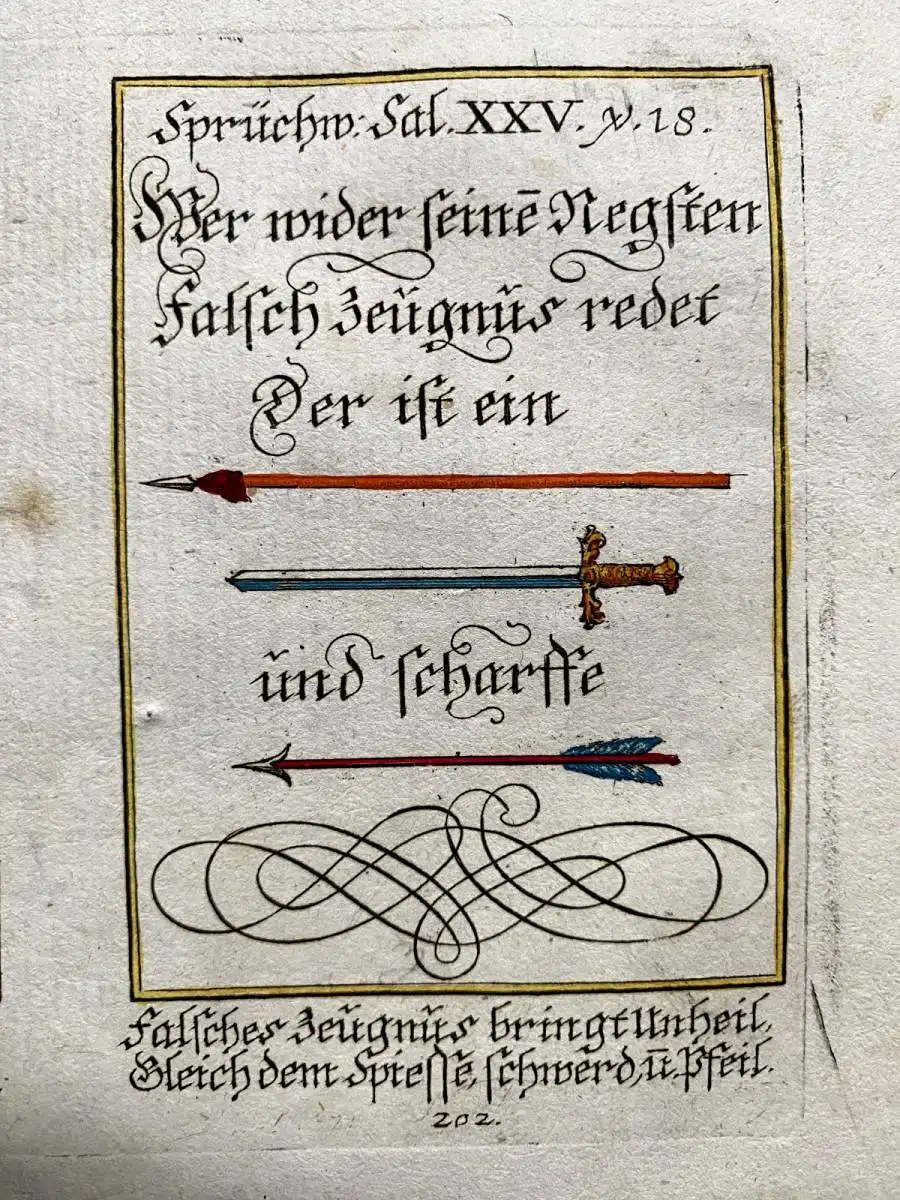 Sprüchw: Sal. XXV. V. 18.
Wer wider seinē Negsten
Falsch Zeŭgnŭs redet
Der ist ein
ŭnd scharffe
Falsches Zeŭgnŭs bringt Unheil,
Gleich dem Spiesse, schwerd, ū. Pfeil.
202.